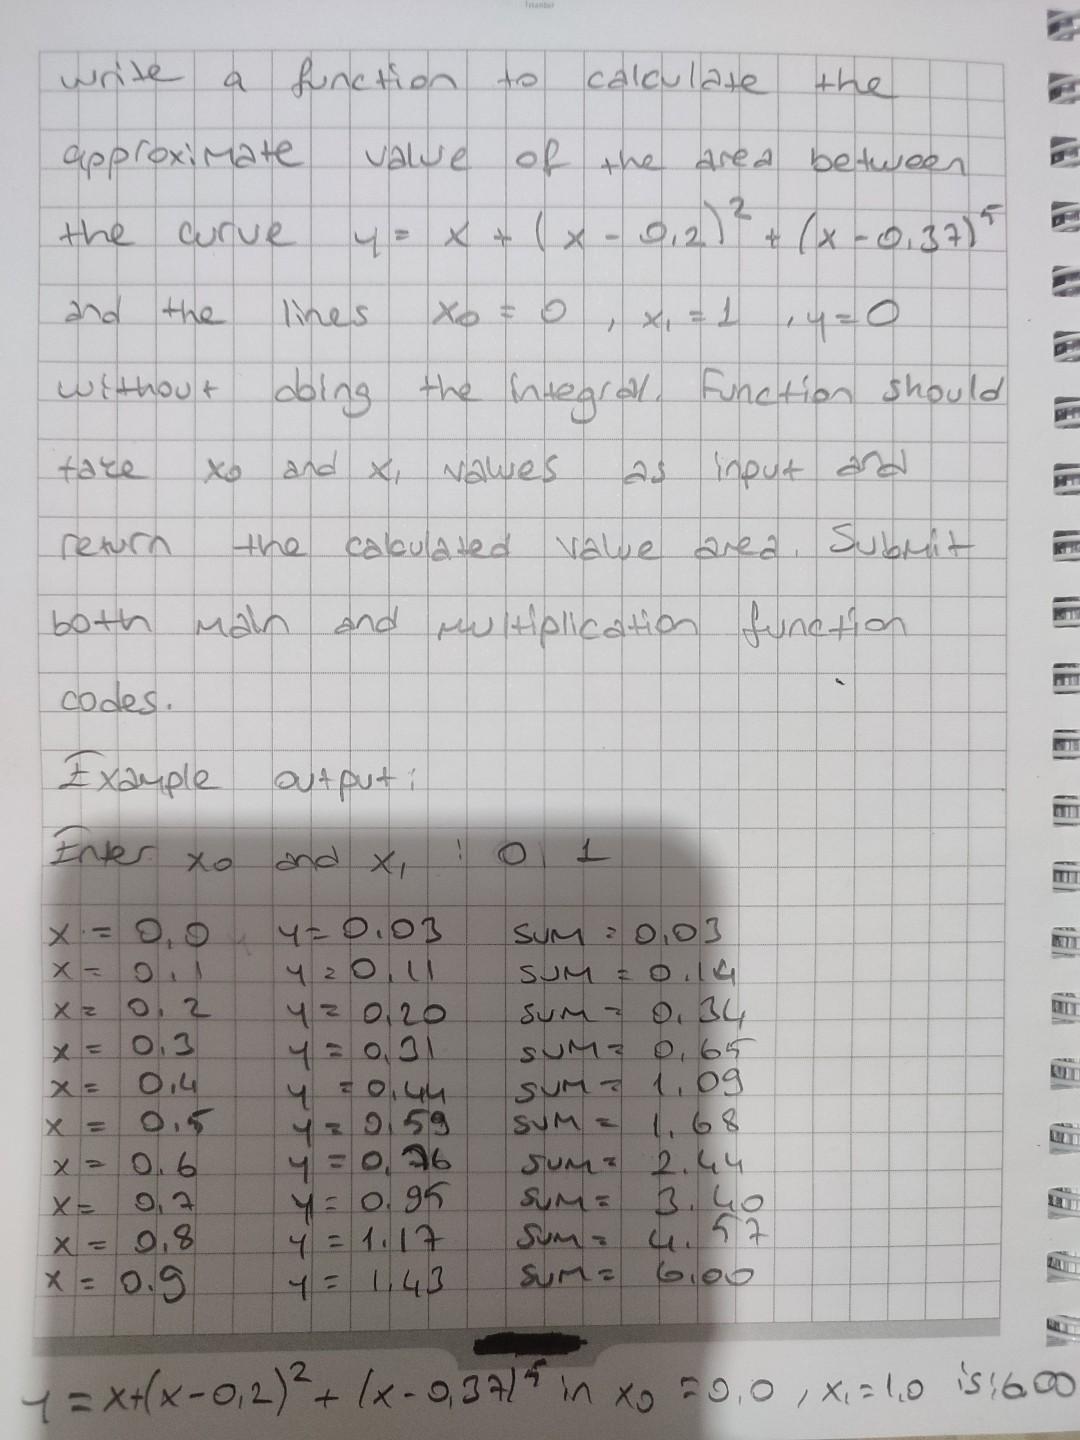 İstanbul
write a function to calculate the
approximate value of the area between
the curve y = x + (x - 0,2)² + (x - 0.37)⁵
and the lines x₀ = 0 , x₁ = 1 , y = 0
without doing the integral. Function should
take x₀ and x₁ values as input and
return the calculated value area. Submit
both main and multiplication function
codes.
Example output:
Enter x₀ and x₁ : 0 1
x = 0,0 y = 0.03 sum = 0,03
x = 0,1 y = 0,11 sum = 0.14
x = 0,2 y = 0,20 sum = 0,34
x = 0,3 y = 0,31 sum = 0,65
x = 0,4 y = 0,44 sum = 1,09
x = 0,5 y = 0,59 sum = 1,68
x = 0,6 y = 0,76 sum = 2.44
x = 0,7 y = 0.95 sum = 3.40
x = 0,8 y = 1.17 sum = 4.57
x = 0.9 y = 1,43 sum = 6,00
y = x+(x-0,2)² + (x-0,37)⁵ in x₀ = 0,0 , x₁ = 1,0 is: 6.00